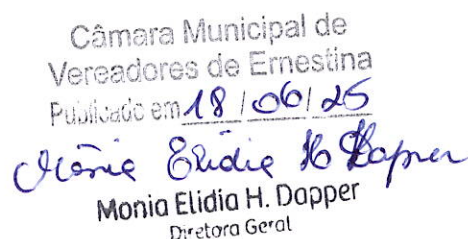 Câmara Municipal de
Vereadores de Ernestina
Publicado em 18 / 06 / 25
Mônia Elidia H Dapper
Monia Elidia H. Dapper
Diretora Geral